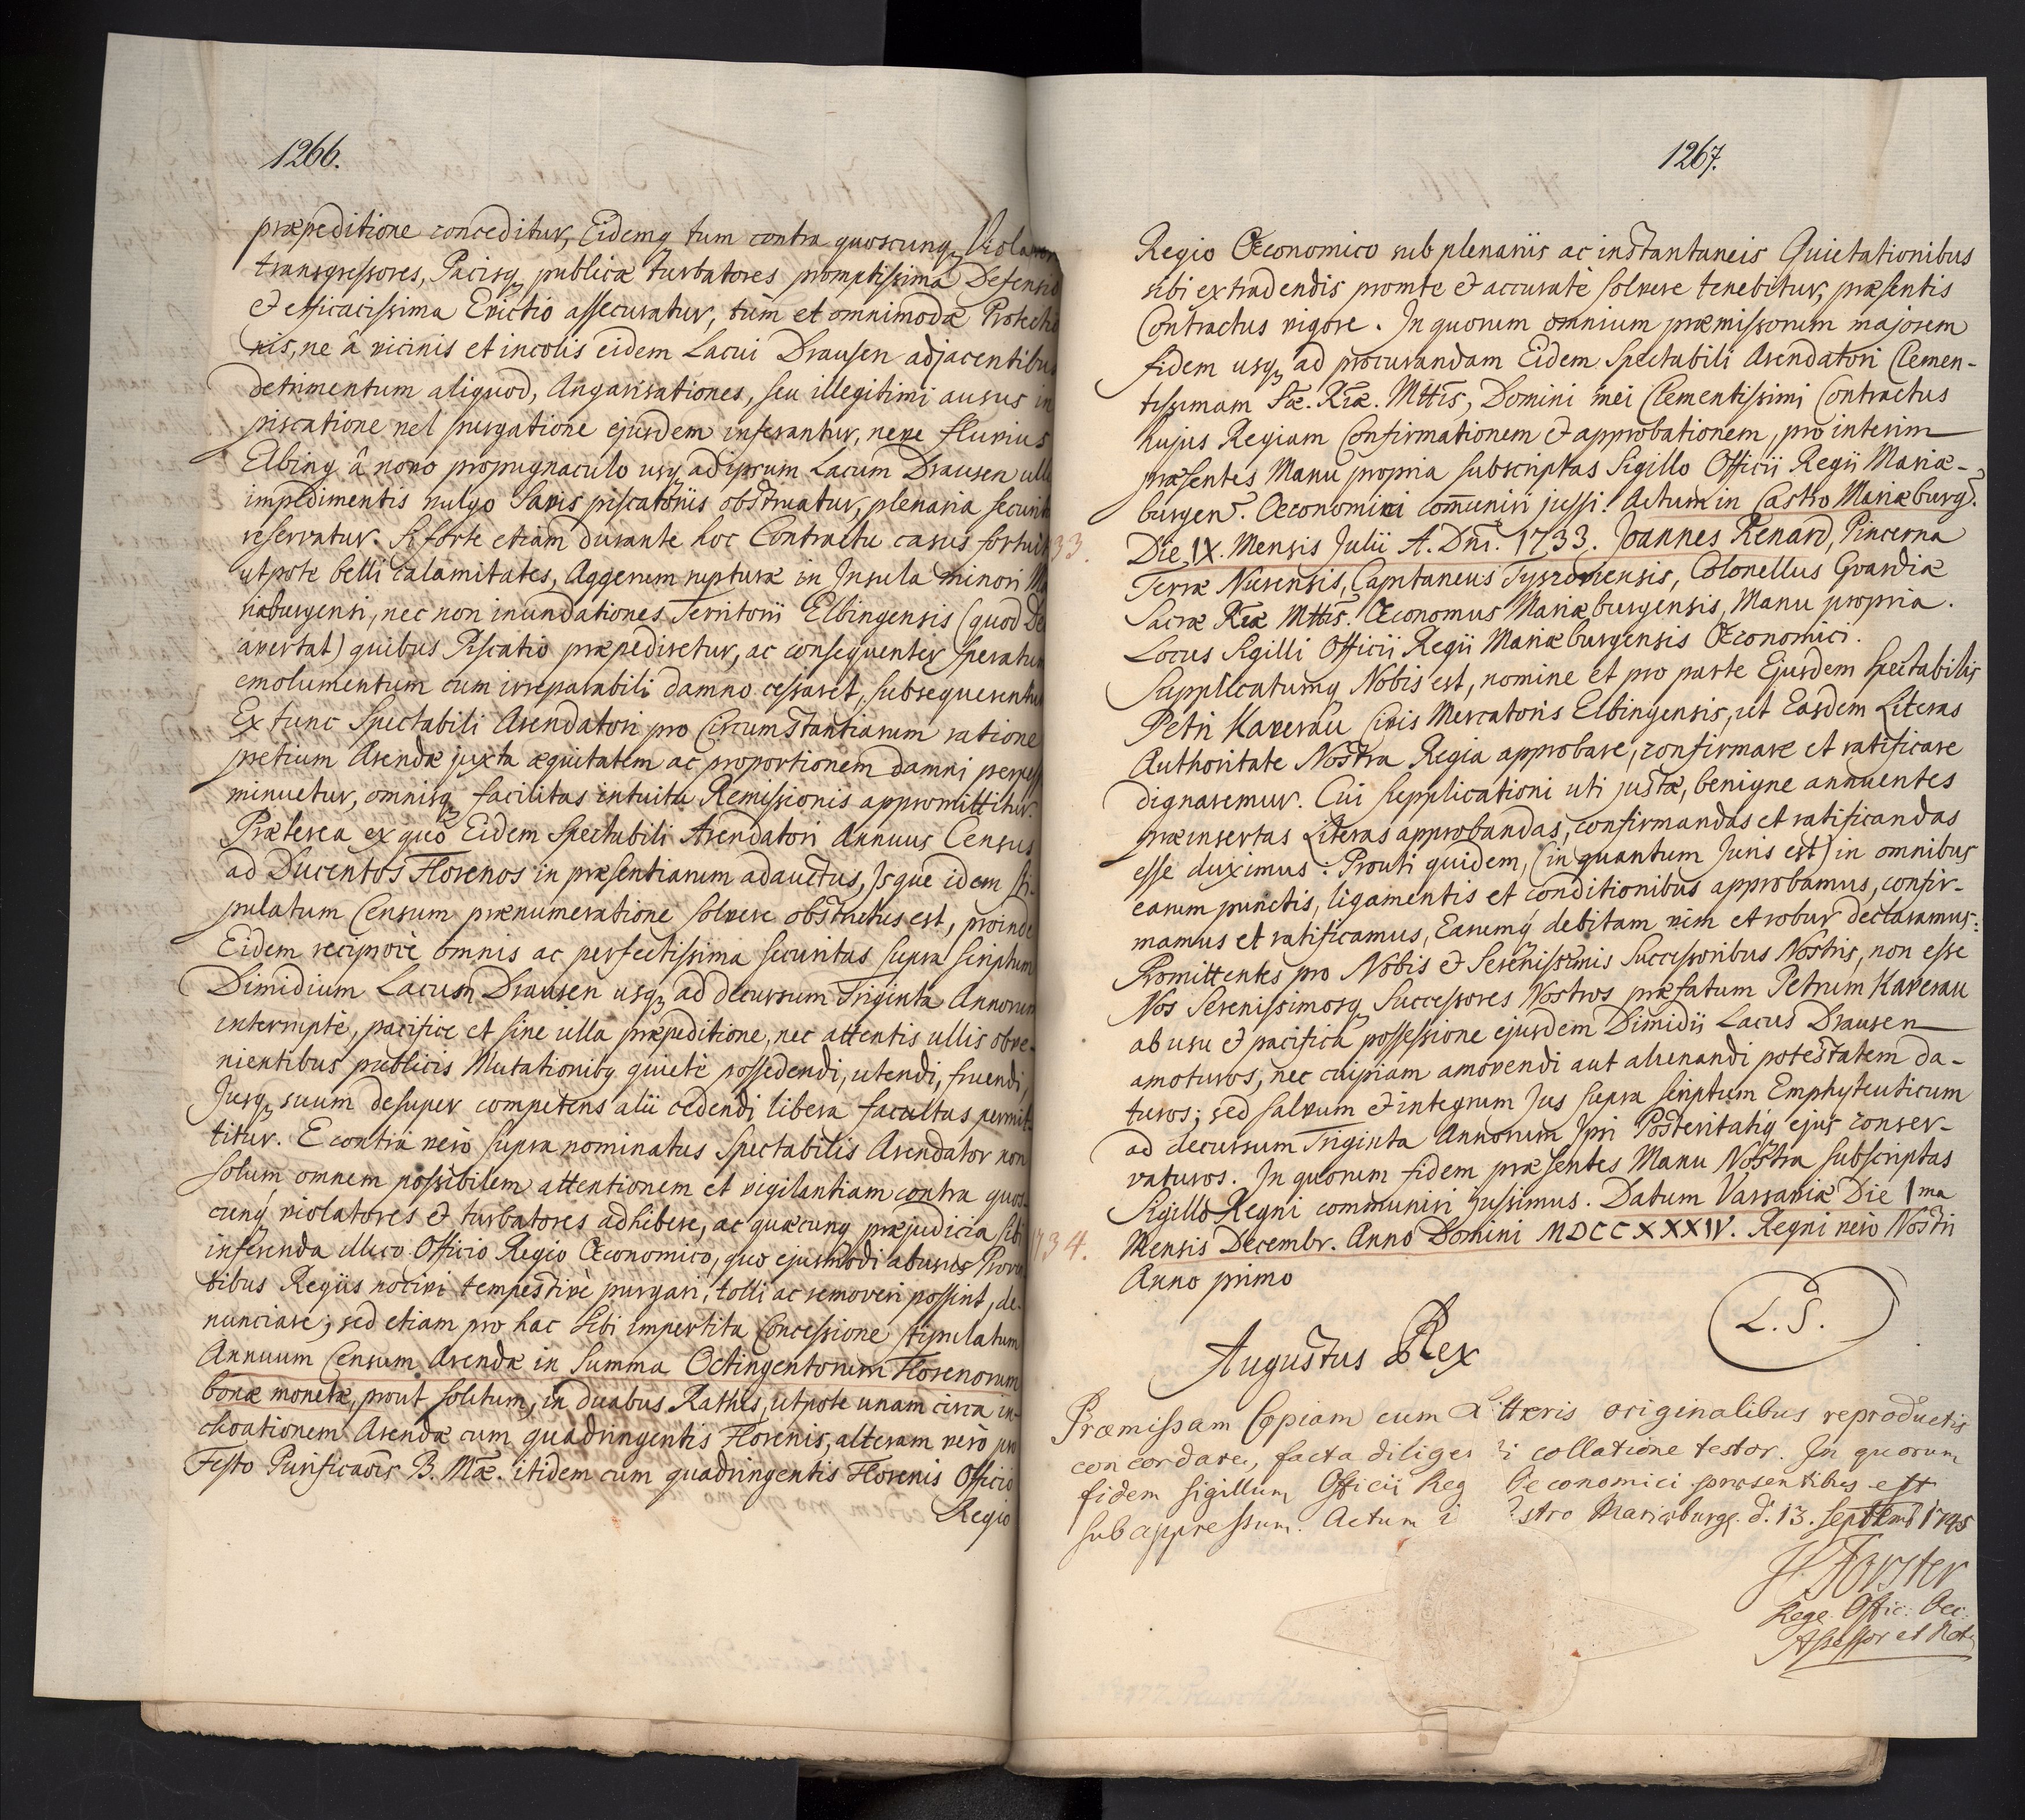 1266.
præpeditione conceditur, Eidemq tum contra quoscunq
transgressores, Pacisq publicæ turbatores promptissima Defensio
& efficacissima Evictio assecuratur, tùm et omnimodæ Protectio
nis, ne â vicinis et incolis eidem Lacui Drausen adjacentibus
detrimentum aliquod, Angarisationes, seu illegitimi ausus in
piscatione vel purgatione ejusdem inferantur, neve fluvius
Elbing â novo propugnaculo usq ad ipsum Lacum Drausen ullis
impedimentis vulgo Savis piscatoriis obstruatur, plenaria securit
reservatur. Si forte etiam durante hoc Contractu casus fortuit
utpote belli calamitates, Aggerum rupturæ in Insula minori Ma
riæburgensi, nec non inundationes Territorii Elbingensis (quod De
avertat) quibus Piscatio præpediretur, ac consequenter speratum
emolumentum cum irreparabili damno cessaret, subsequerentur
Ex tunc Spectabili Arendatori pro Circumstantiarum ratione
pretium Arendæ juxta æquitatem ac proportionem damni perpess
minuetur, omnisq facilitas intuitu Remissionis appromittitur.
Præterea ex quo Eidem Spectabili Arendatori Annuus Census
ad Ducentos Florenos in præsentiarum adauctus, Isque idem sti-
pulatum Censum prænumeratione solvere obstrictus est, proinde
Eidem reciprocè omnis ac perfectissima securitas supra scriptum
Dimidium Lacum Drausen usq ad decursum Triginta Annorum
interruptè, pacifice et sine ulla præpeditione, nec attentis ullis obve-
nientibus publicis Mutationibq quietè possedendi, utendi, fruendi,
Jusq suum desuper competens alii cedendi libera facultas permit-
titur. E contra verò supra nominatus Spectabilis Arendator non
solum omnem possibilem attentionem et vigilantiam contra quos-
cunq violatores & turbatores adhibere, ac quæcunq præjudicia sibi
inferenda illico Officio Regio Œconomico, quo ejusmodi abusus Prove
tibus Regiis nocivi tempestivè purgari, tolli ac removeri possint, de-
nunciare; sed etiam pro hac sibi impertita Concessione stipulatum
Annuum Censum Arendæ in Summa Octingentorum Florenorum
bonæ monetæ, prout solitum, in duabus Rathis, utpote unam circa in-
choationem Arendæ cum quadringentis Florenis, alteram verò pro
Festo Purificaois B. Mæ. itidem cum quadringentis Florenis Officio
Regio
1267.
Regio Œconomico sub plenariis ac instantaneis Quietationibus
sibi extradendis promte & accuratè solvere tenebitur, præsentis
Contractus vigore. In quorum omnium præmissorum majorem
fidem usq ad procurandam Eidem Spectabili Arendatori Clemen-
tissimam Sæ. Ræ. Mttis, Domini mei Clementissimi Contractus
hujus Regiam Confirmationem & approbationem, pro interim
præsentes Manu propria subscriptas Sigillo Officii Regii Mariæ-
burgen. Œconomici comuniri jussi. Actum in Castro Mariæburg.
33.
Die IX. Mensis Julii A. Dni. 1733. Joannes Renard, Pincerna
Terræ Nurensis, Capitaneus Tyszoviensis, Colonellus Gvardiæ
Sacræ Ræ Mttis. Œconomus Mariæburgensis, Manu propria.
Locus Sigilli Officii Regii Mariæburgensis Œconomici.
Supplicatumq Nobis est, nomine et pro parte Ejusdem Spectabilis
Petri Kaverau Civis Mercatoris Elbingensis, ut Easdem Literas
Authoritate Nostra Regia approbare, confirmare et ratificare
dignaremur. Cui Supplicationi uti justæ, benigne annuentes
præinsertas Literas approbandas, confirmandas et ratificandas
esse duximus: Prouti quidem, (in quantum Juris est) in omnibus
earum punctis, ligamentis et conditionibus approbamus, confir-
mamus et ratificamus, Earumq debitam vim et robur declaramus:
Promittentes pro Nobis & Serenissimis Successoribus Nostris, non esse
Nos Serenissimosq Successores Nostros præfatum Petrum Kaverau
ab usu & pacifica possessione ejusdem Dimidii Lacus Drausen
amoturos, nec cuipiam amovendi aut alienandi potestatem da-
turos; sed salvum & integrum Jus supra scriptum Emphyteuticum
ad decursum Triginta Annorum Ipsi Posteritatiq ejus conser-
vaturos. In quorum fidem præsentes Manu Nostra subscriptas
Sigillo Regni communiri jussimus. Datum Varsaviæ Die 1ma
734.
Mensis Decembr. Anno Domini MDCCXXXIV. Regni verò Nostri
Anno primo
Augustus Rex
L.S.
Præmissam Copiam cum Litteris originalibus reproductis
concordare, facta diligenti collatione testor. In quorum
fidem sigillum Officii Reg Oeconomici præsentibus est
subappressum. Actum i stro Mariæburg. d. 13. Septemb 1745
Forster
Rege. Offic: Oec:
Assessor et Not